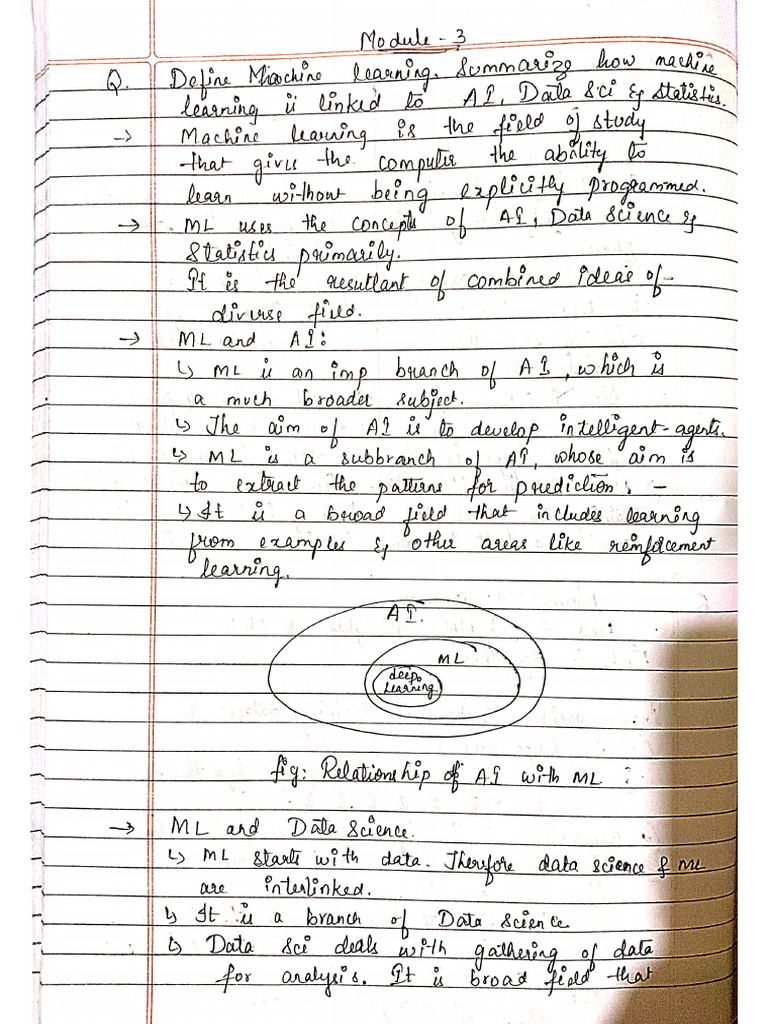 Module - 3
Q. Define Machine learning. Summarize how machine
learning is linked to AI, Data Sci & Statistics.
→ Machine learning is the field of study
that gives the computer the ability to
learn without being explicitly programmed.
→ ML uses the concepts of AI, Data Science &
Statistics primarily.
It is the resultant of combined ideas of
diverse field.
→ ML and AI:
↳ ML is an imp branch of AI, which is
a much broader subject.
↳ The aim of AI is to develop intelligent-agents.
↳ ML is a subbranch of AI, whose aim is
to extract the patterns for prediction. -
↳ It is a broad field that includes learning
from examples & other areas like reinforcement
learning.
AI.
ML
deep
learning
fig: Relationship of AI with ML
→ ML and Data Science.
↳ ML starts with data. Therefore data science & ML
are interlinked.
↳ It is a branch of Data Science
↳ Data Sci deals with gathering of data
for analysis. It is broad field that